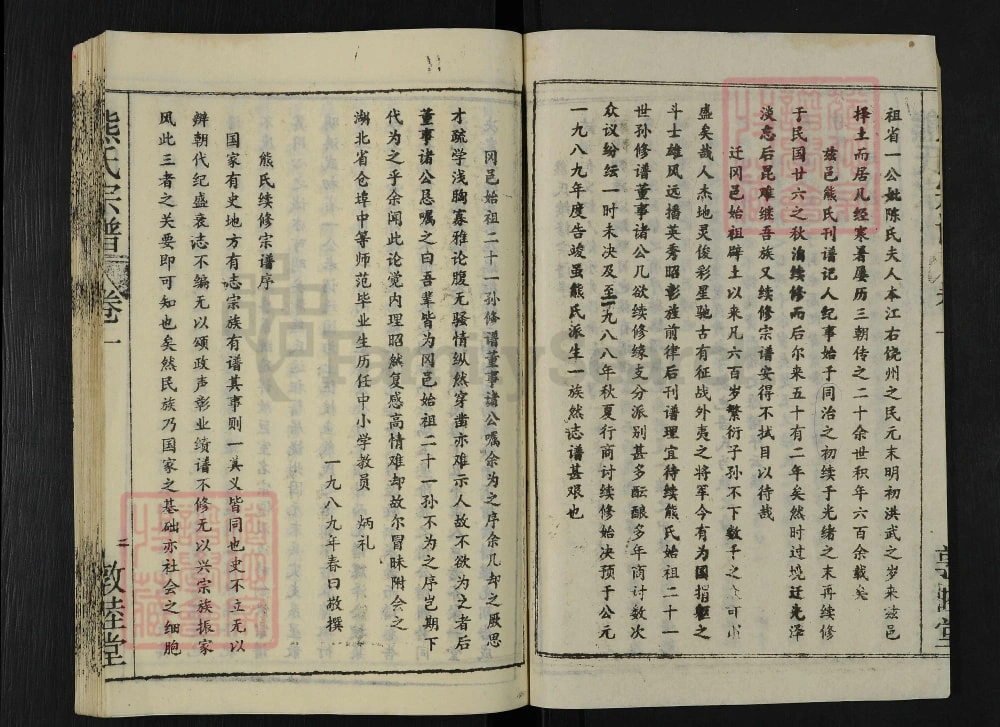 祖省一公妣陈氏夫人本江右饶州之民元末明初洪武之岁来兹邑
择土而居凡经寒暑屡历三朝传之二十余世积年六百余载矣
兹邑熊氏刊谱记人纪事始于同治之初续于光绪之末再续修
于民国廿六之秋溯续修而后尔来五十有二年矣然时过境迁光泽
淡忘后昆难继吾族又续修宗谱安得不拭目以待哉
迁冈邑始祖辟土以来凡六百岁繁衍子孙不下数千之众可谓
盛矣哉人杰地灵俊彩星驰古有征战外夷之将军今有为国捐躯之
斗士雄风远播英秀昭彰旌前律后刊谱理宜待续熊氏始祖二十一
世孙修谱董事诸公几欲续修缘支分派别甚多酝酿多年商讨数次
众议纷纭一时未决及至一九八八年秋夏行商讨续修始决预于公元
一九八九年度告竣虽熊氏派生一族然志谱甚艰也
冈邑始祖二十一孙修谱董事诸公嘱余为之序余几却之厥思
才疏学浅胸寡雅论腹无骚情纵然穿凿亦难示人故不欲为之者后
董事诸公恳嘱之曰吾辈皆为冈邑始祖二十一孙不为之序岂期下
代为之乎余闻此论觉内理昭然复感高情难却故尔冒昧附会之
湖北省仓埠中等师范毕业生历任中小学教员 炳礼
一九八九年春日敬撰
熊氏续修宗谱序
国家有史地方有志宗族有谱其事则一其义皆同也史不立无以
辨朝代纪盛衰志不编无以颂政声彰业绩谱不修无以兴宗族振家
风此三者之关要即可知也矣然民族乃国家之基础亦社会之细胞
熊氏宗谱 卷一 二 敦睦堂